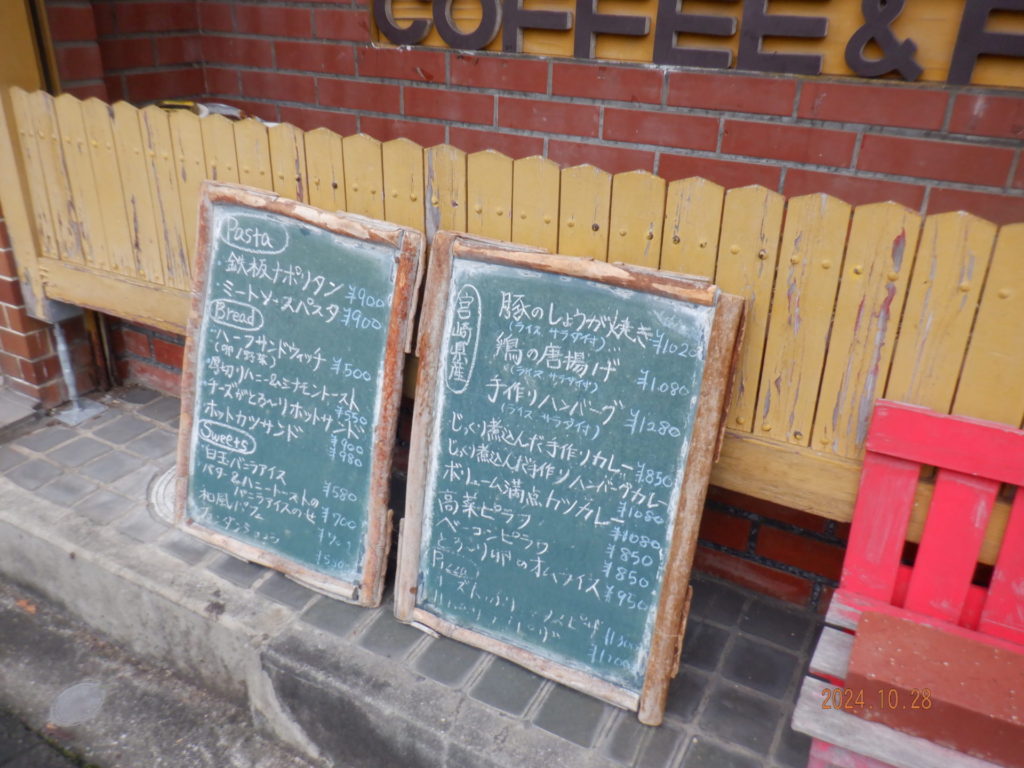 COFFEE & F
Pasta
・鉄板ナポリタン ¥900
ミートソースパスタ ¥900
Bread
ハーフサンドウィッチ ¥500
(卵/野菜)
厚切りハニー&シナモントースト ¥550
チーズがとろ〜りホットサンド ¥900
ホットカツサンド ¥980
Sweets
白玉バニラアイス ¥580
バター&ハニートーストの
バニラアイスのせ ¥700
和風パフェ
宮崎県産
豚のしょうが焼き ¥1020
(ライス サラダ付)
鶏の唐揚げ ¥1080
(ライス サラダ付)
手作りハンバーグ ¥1280
(ライス サラダ付)
じっくり煮込んだ手作りカレー ¥850
じっくり煮込んだ手作りハンバーグカレー ¥1080
ボリューム満点カツカレー ¥1080
高菜ピラフ ¥850
ベーコンピラフ ¥850
とろ〜り卵のオムライス ¥950
2024.10.28